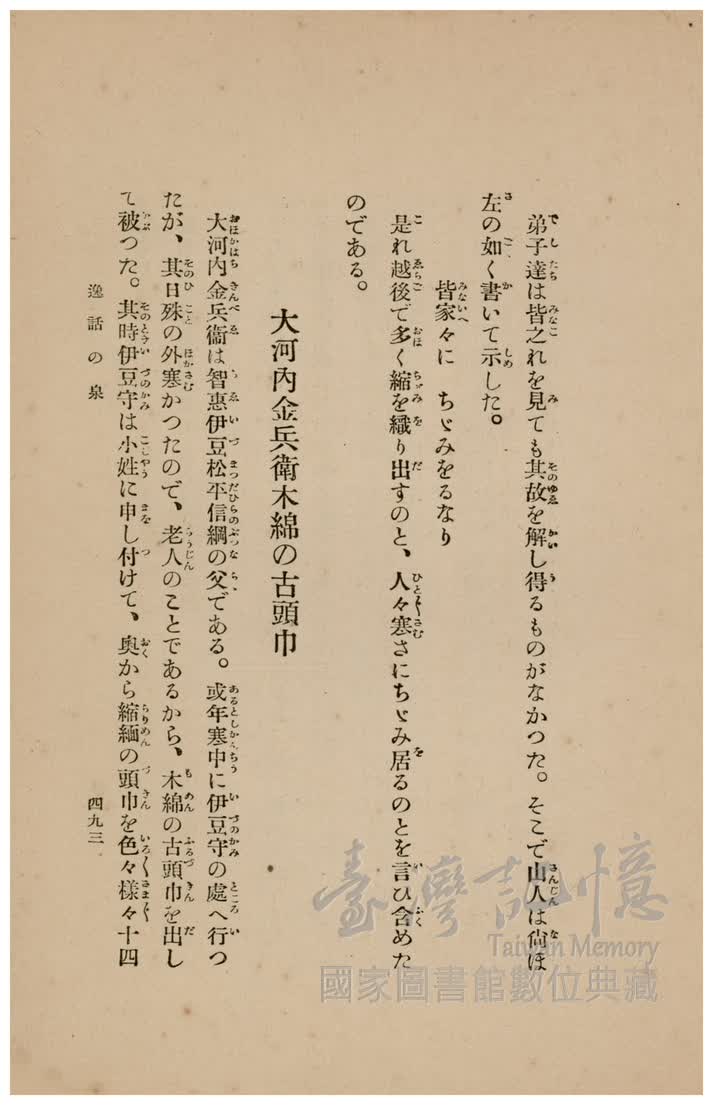 弟子達は皆之れを見ても其故を解し得るものがなかつた。そこで山人は尙ほ
左の如く書いて示した。
皆家々に　ちゞみをるなり
是れ越後で多く縮を織り出すのと、人々寒さにちゞみ居るのとを言ひ含めた
のである。
大河內金兵衛木綿の古頭巾
大河內金兵衞は智惠伊豆松平信綱の父である。或年寒中に伊豆守の處へ行つ
たが、其日殊の外寒かつたので、老人のことであるから、木綿の古頭巾を出し
て被つた。其時伊豆守は小姓に申し付けて、奧から縮緬の頭巾を色々樣々十四
逸話の泉
四九三
臺灣記憶
Taiwan Memory
國家圖書館數位典藏